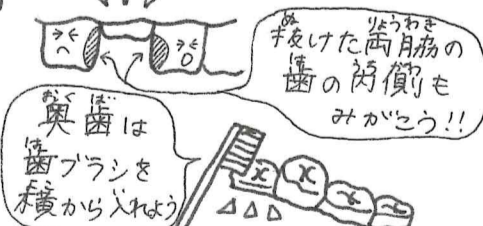 抜けた両脇の
歯の内側も
みがこう!!
奥歯は
歯ブラシを
横から入れよう